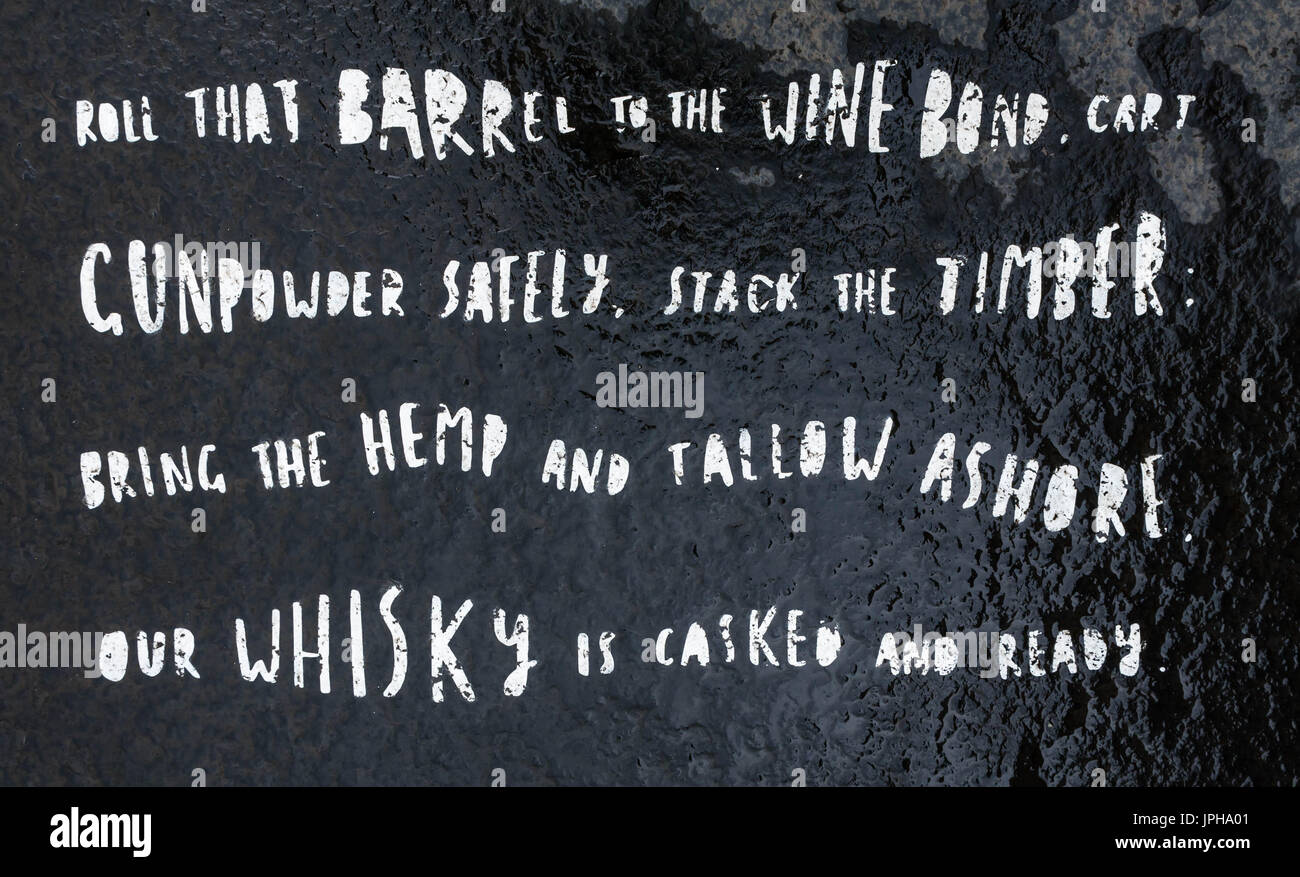 ROLL THAT BARREL TO THE WINE BOND. CART
GUNPOWDER SAFELY. STACK THE TIMBER:
BRING THE HEMP AND TALLOW ASHORE.
OUR WHISKY IS CASKED AND READY.
alamy stock photo
JPHA01
www.alamy.com